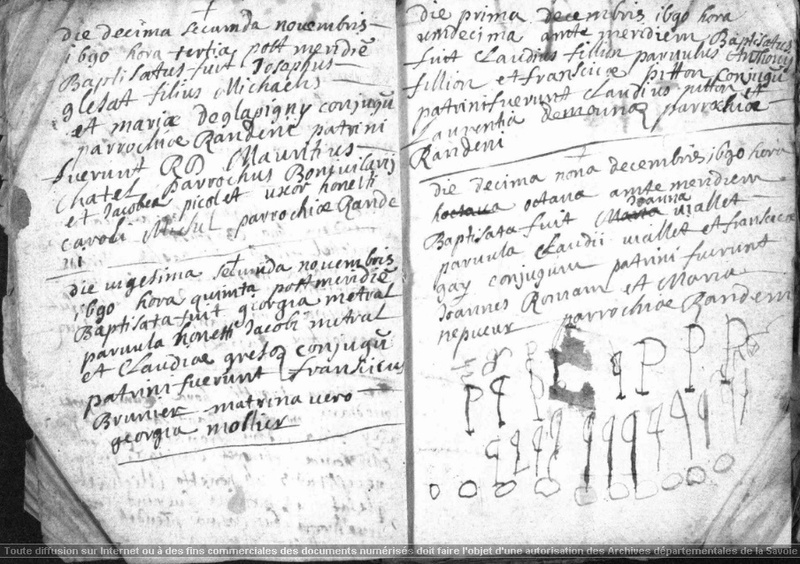 die decima secunda novembris
1690 hora tertia post meridiē
Baptisatus fuit Josephus
glesat filius Michaelis
et mariæ deglapigny conjugū
parrochiæ Randeni patrini
fuerunt RD Mauritius
Chatel parrochus Bonivilarij
et Jacobea picolet uxor honesti
caroli parrochiæ Rande
ni
die vigesima secunda novembris
1690 hora quinta post meridiē
Baptisata fuit giorgia metral
parvula honesti Jacobi metral
et Claudiæ conjugū
patrini fuerunt franciscus
Brunier matrina vero
georgia mollier
die prima decembris 1690 hora
undecima ante meridiem Baptisatus
fuit Claudius fillion parvulus Anthonij
fillion et franciscæ pitton conjugū
patrini fuerunt Claudius pitton et
Laurentia parrochiæ
Randeni
die decima nona decembris 1690 hora
octava ante meridiem
Joanna
Baptisata fuit viallet
parvula Claudii viallet et franciscæ
gay conjugum patrini fuerunt
Joannes Romain et Maria
nepveur parrochiæ Randeni
P q P E q P P P
q q q q q q q q q q
o o o o o o o o o o
Toute diffusion sur Internet ou à des fins commerciales des documents numérisés doit faire l'objet d'une autorisation des Archives départementales de la Savoie